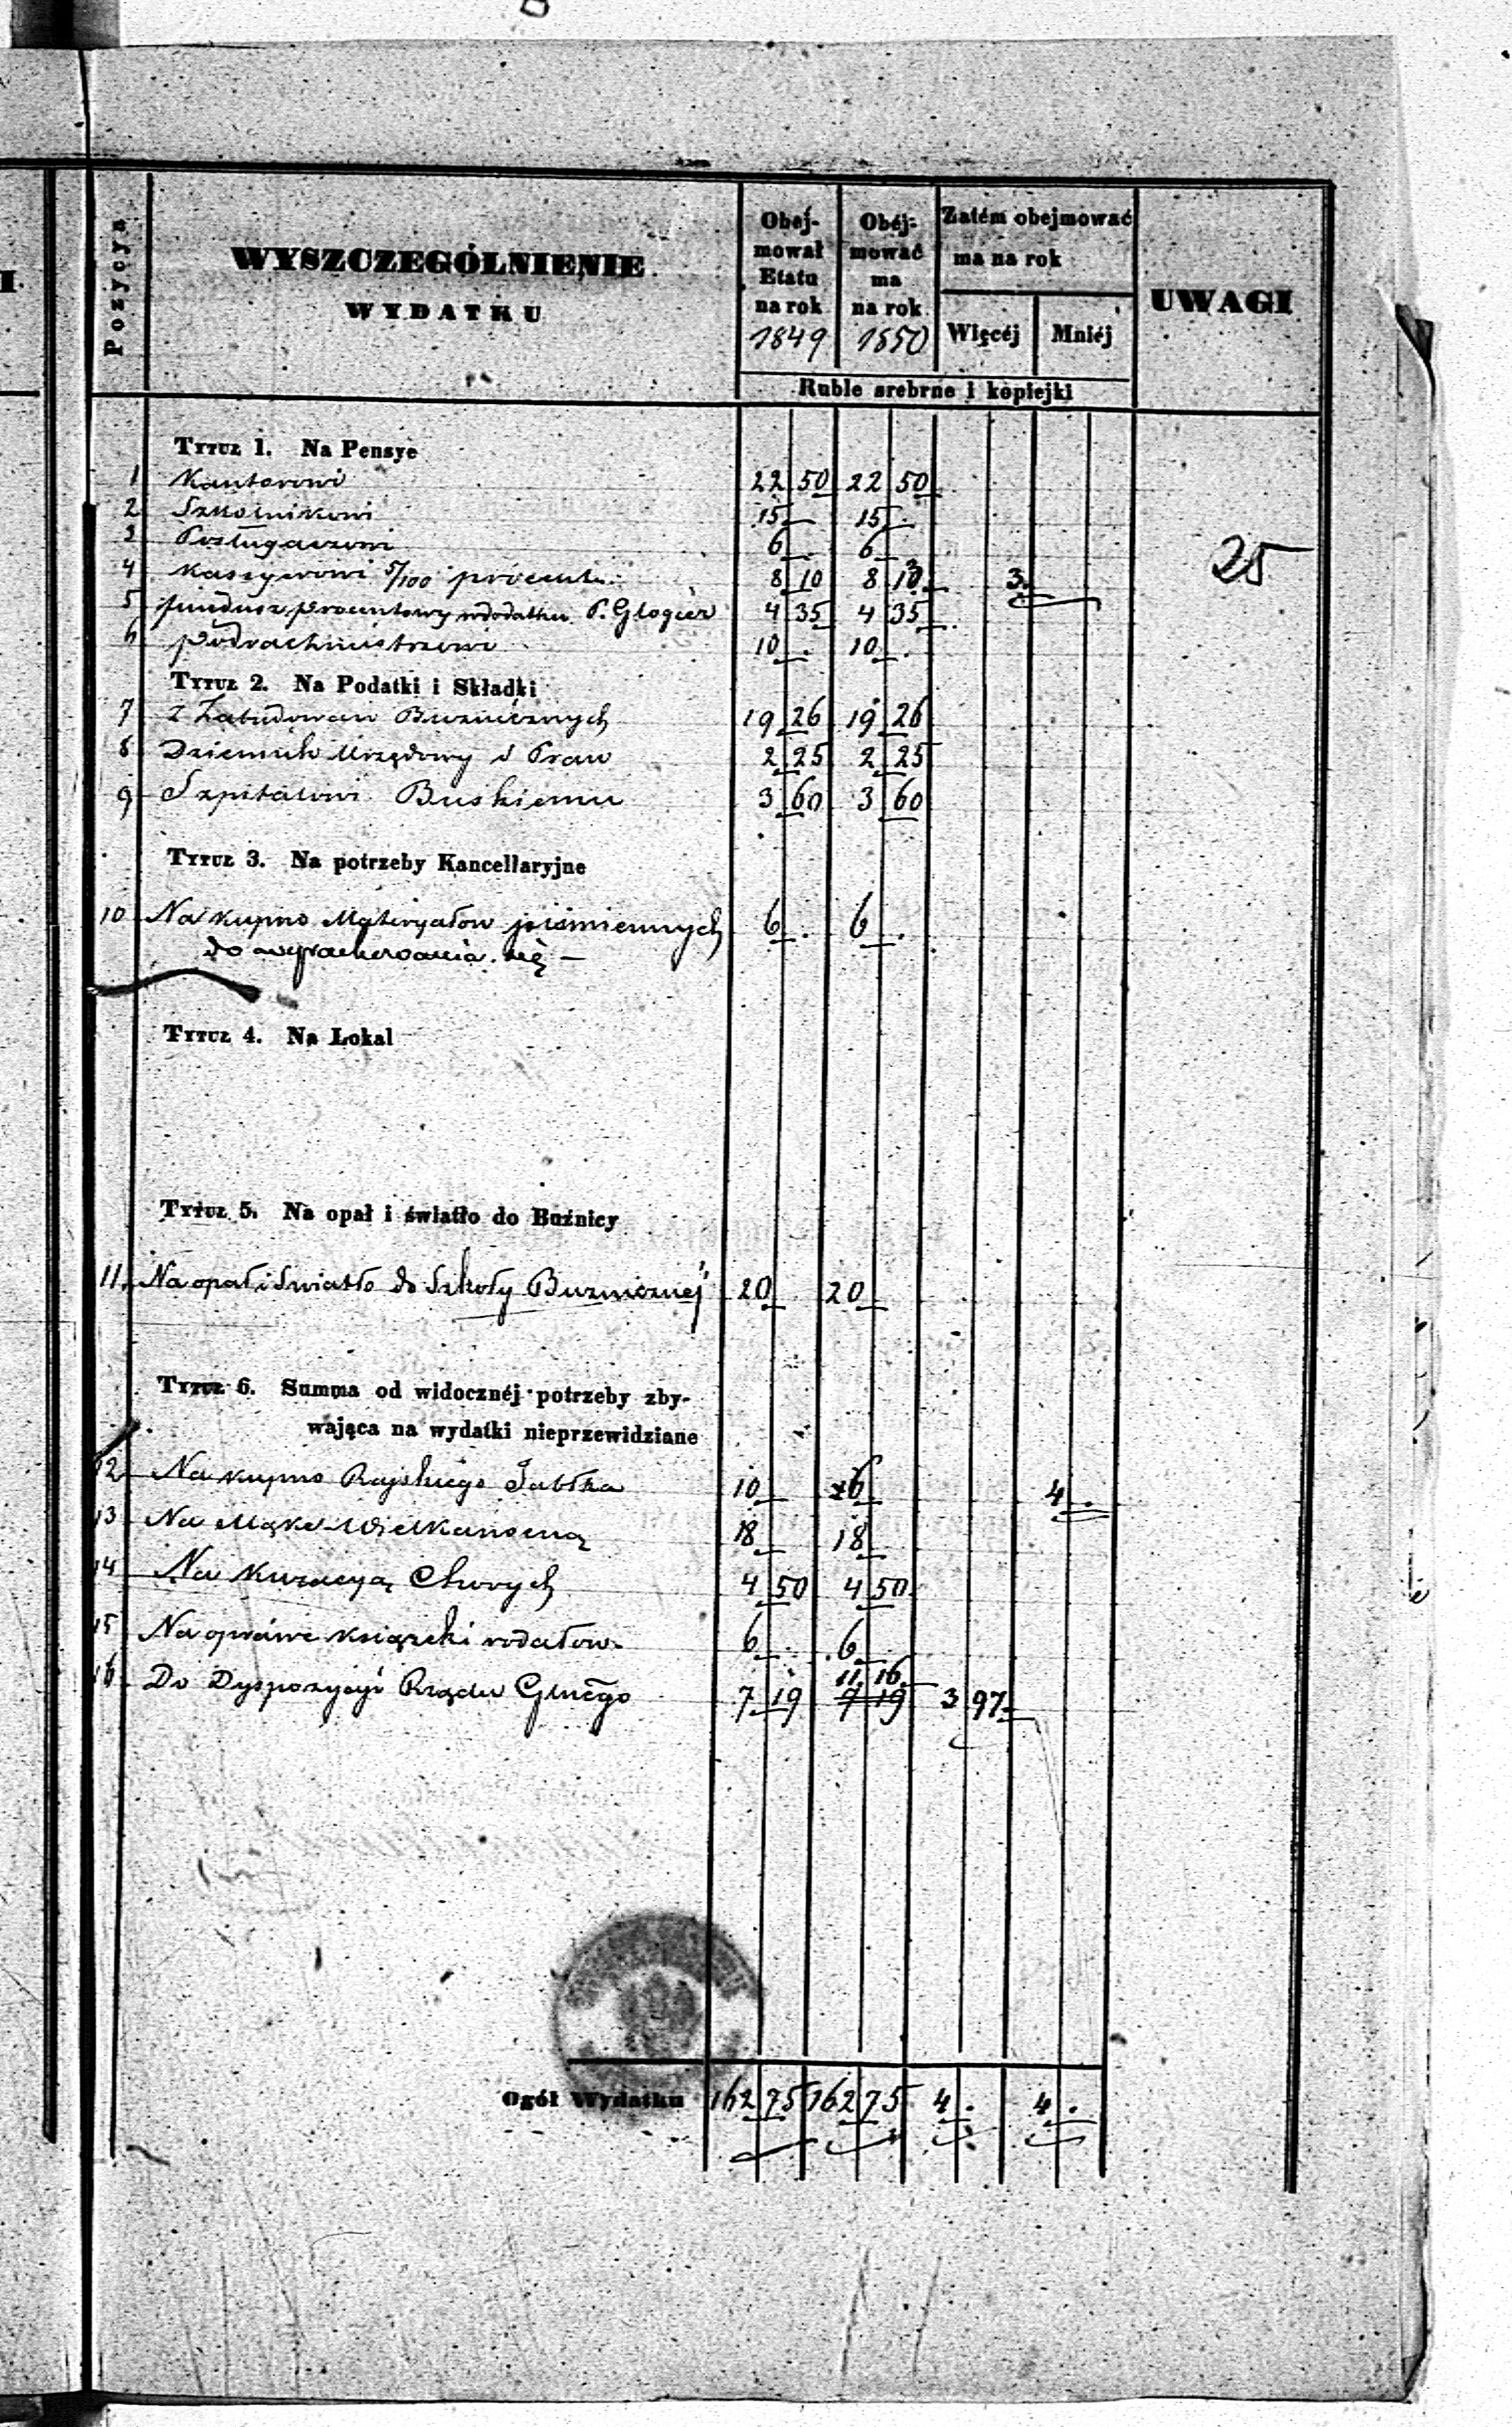 Pozycya
WYSZCZEGÓLNIENIE
WYDATKU
Obej-
mował
Etatu
na rok
1849
Obéj-
mować
ma
na rok
1850
Zatém obejmować
ma na rok
Więcéj
Mniéj
UWAGI
Ruble srebrne i kopiejki
TYTUŁ 1. Na Pensye
1 Kantorowi 22 50 22 50
2 Szkolnikowi 15 15
3 Posługaczowi 6 6
25
4 Kassyerowi 5/100 procentu 8 10 8 13 3
5 fundusz procentowy P. Glogier 4 35 4 35
6 podrachmistrzowi 10 10
TYTUŁ 2. Na Podatki i Składki
7 Z Zabudowań Buznicznych 19 26 19 26
8 Dziennik Urzędowy i Praw 2 25 2 25
9 Szpitalowi Buskiemu 3 60 3 60
TYTUŁ 3. Na potrzeby Kancellaryjne
10 Na kupno Materyałów piśmiennych 6 6
do wyrachowania się —
TYTUŁ 4. Na Lokal
TYTUŁ 5. Na opał i światło do Buźnicy
11 Na opał i Swiatło do Szkoły Buzniczney 20 20
TYTUŁ 6. Summa od widocznéj potrzeby zby-
wająca na wydatki nieprzewidziane
12 Na kupno Rajskiego Jabłka 10 6 4
13 Na Mąke Wielkanocną 18 18
14 Na Kuracyą Chorych 4 50 4 50
15 Na oprawe książeki rodałow 6 6
11 16
16 Do Dyspozycyi Rządu Gnego 7 19 7 19 3 97
Ogół Wydatku 162 75 162 75 4 4